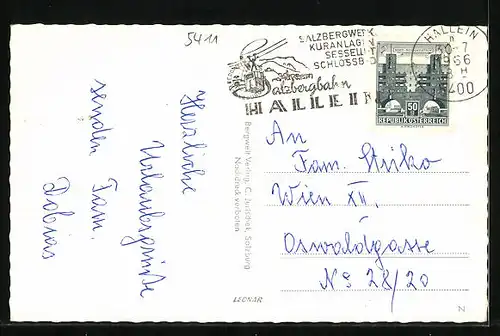 5411
SALZBERGWERK
KURANLAGEN
SESSELL
SCHLOSSB
Salzbergbahn
HALLEIN
HALLEIN
-7
1966
400
50
REPUBLIK ÖSTERREICH
Herzliche
Urlaubsgrüße
senden Fam.
Dobias
Bergwelt Verlag, C. Jurischek, Salzburg
Nachdruck verboten
An
Fam. Striko
Wien XII.
Oswaldgasse
No 28/20
LEONAR
N